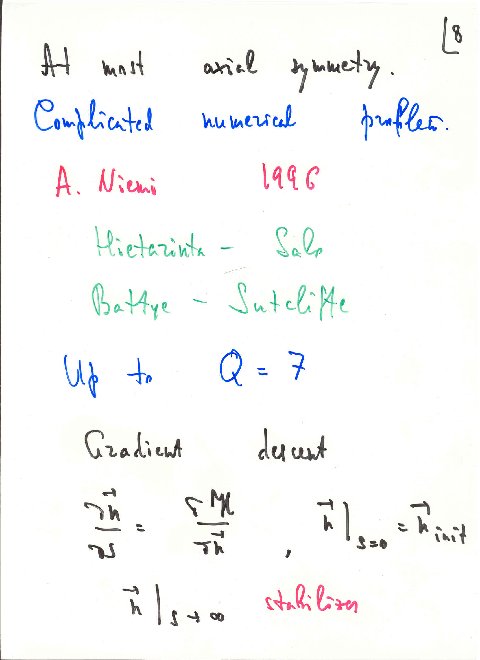 8
At most axial symmetry.
Complicated numerical problem.
A. Niemi 1996
Hietarinta - Salo
Battye - Sutcliffe
Up to Q = 7
Gradient descent
∂n⃗/∂s = δH/δn⃗ , n⃗|s=0 = n⃗ init
n⃗|s→∞ stabilizes